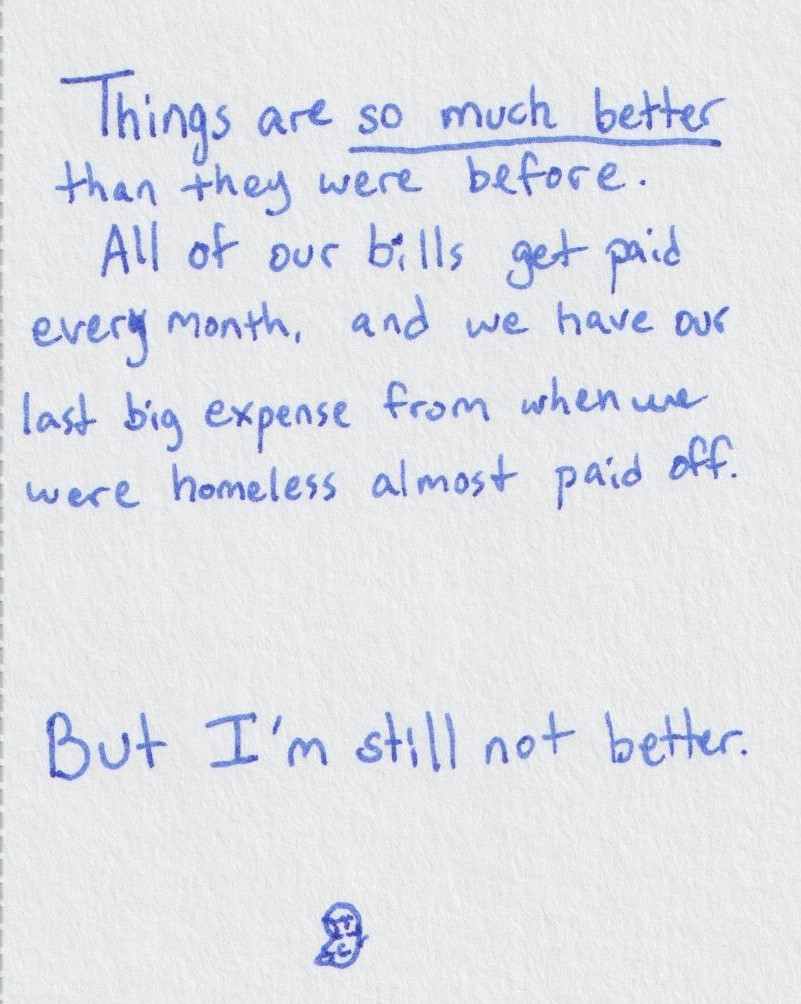 Things are so much better
than they were before.
All of our bills get paid
every month, and we have our
last big expense from when we
were homeless almost paid off.
But I'm still not better.